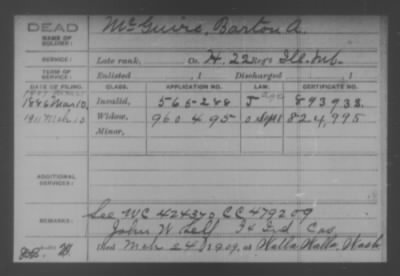 DEAD
NAME OF SOLDIER: McGuire, Barton A.
SERVICE: Late rank, Co. H, 22 Reg't Ill. Inf.
TERM OF SERVICE: Enlisted , 1 Discharged , 1
DATE OF FILING. CLASS. APPLICATION NO. LAW. CERTIFICATE NO.
1886 Mar 10, Invalid, 565-288 J 893938.
1911 Mch 10 Widow, 960495 824,995
Minor,
ADDITIONAL SERVICES:
REMARKS: See WC 424370 CC 479209
John W Self
Died Mch 24, 1909, at Walla Walla, Wash